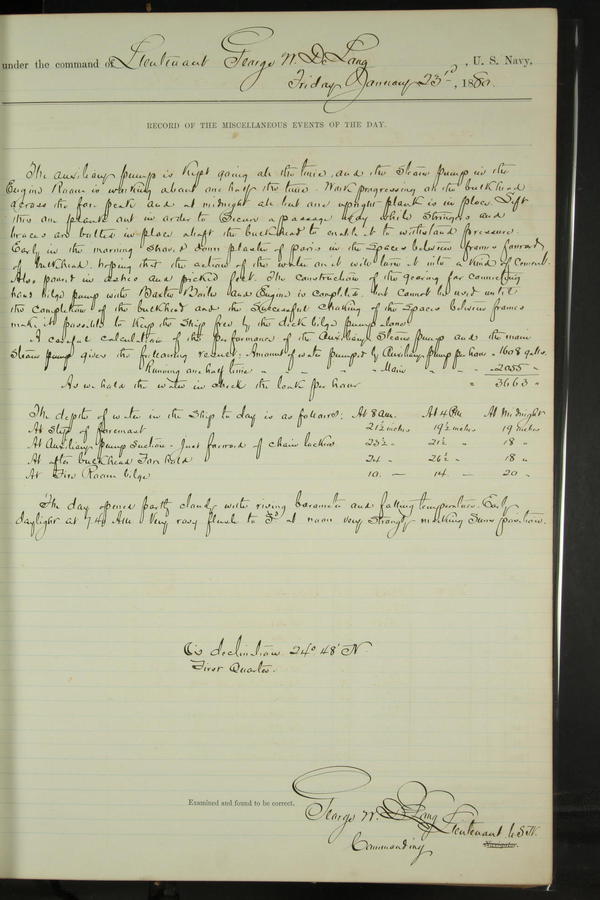 under the command of Lieutenant George W. De Long, U. S. Navy,
Friday January 23rd, 1880.
RECORD OF THE MISCELLANEOUS EVENTS OF THE DAY.
The auxiliary pump is kept going all the time, and the Steam pump in the
Engine Room is working about one half the time. Work progressing on the bulkhead
across the fore peak and at midnight all but one upright plank is in place. Left
this one plank out in order to secure a passage way while stringers and
braces are bolted in place abaft the bulkhead to enable it to withstand pressure.
Early in the morning shoved down plaster of paris in the spaces between frames forward
of bulkhead, hoping that the action of the water on it will turn it into a kind of cement.
Also poured in ashes and picked felt. The construction of the gearing for connecting
hand bilge pump with Baxter Boiler and Engine is completed, but cannot be used until
the completion of the bulkhead and the successful choking of the spaces between frames
make it possible to keep the ship free by the deck bilge pump alone.
A careful calculation of the performance of the Auxiliary Steam pump and the main
Steam pump gives the following result: Amount of water pumped by Auxiliary pump per hour - 1608 galls.
Running one half time " " " " Main " " 2055 "
As we hold the water in check the leak per hour " 3663 "
The depth of water in the ship to day is as follows: At 8 am. At 4 PM At Midnight
At Step of foremast 21½ inches 19½ inches 19 inches
At Auxiliary Pump Suction - just forward of chain lockers 23½ " 21½ " 18 "
At after bulkhead Fore Hold 24 " 26½ " 18 "
At Fire Room bilge 10 — 14 — 20 "
The day opened partly cloudy with rising barometer and falling temperature. Early
daylight at 7.40 AM Very rosy flush to Sd at noon very strongly marking Suns position.
☉'s declination 24° 48' N.
First Quarter.
Examined and found to be correct.
George W. De Long Lieutenant U.S.N.
Commanding
Navigator.